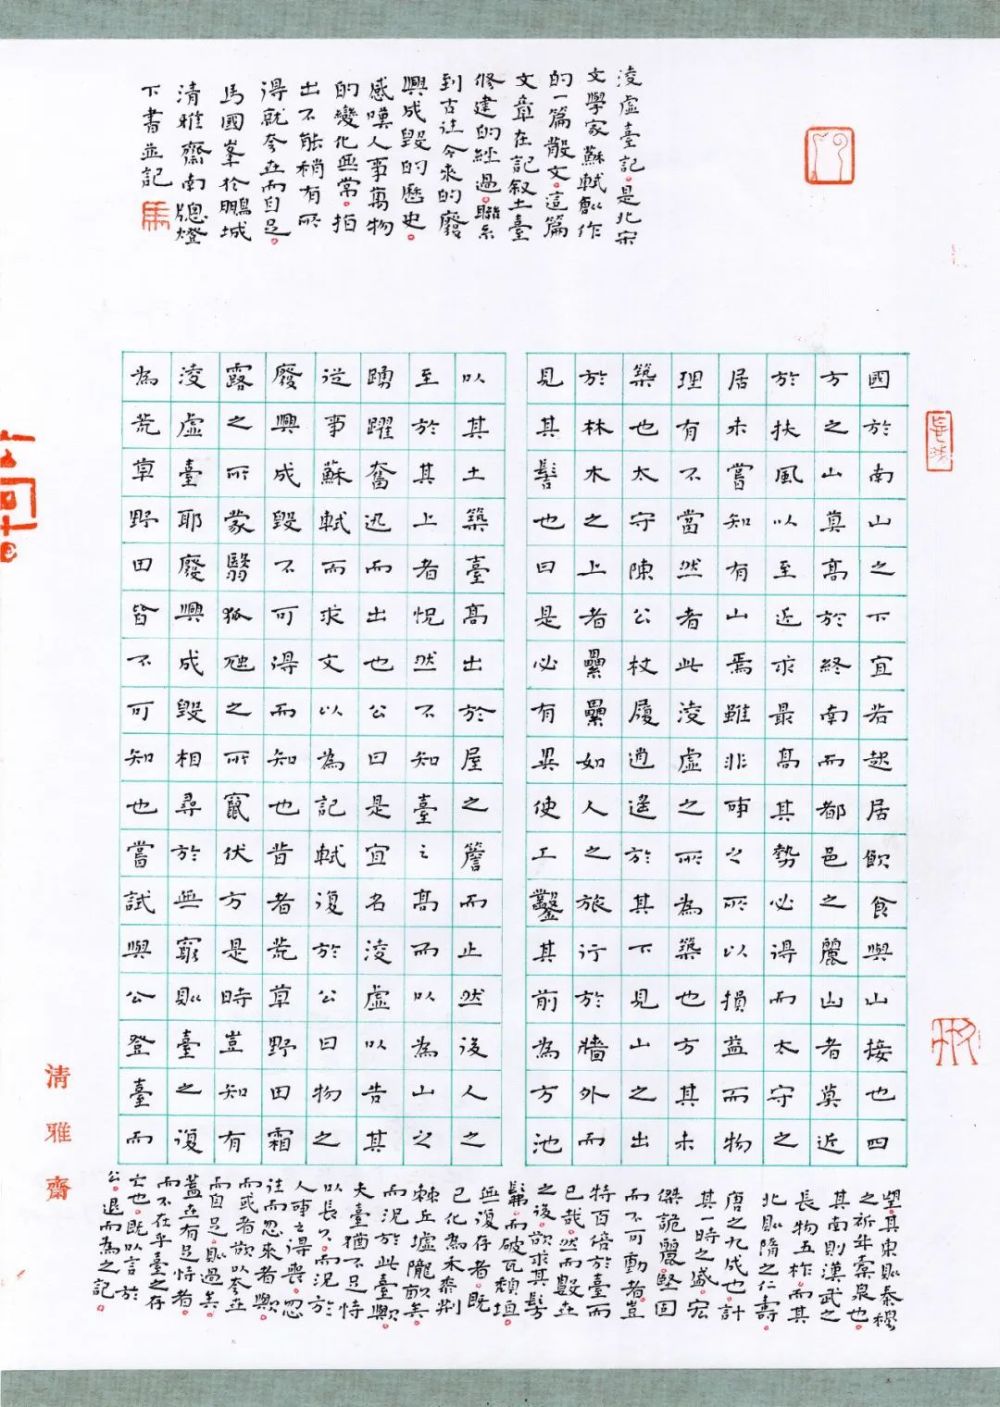 淩虛臺記。是北宋
文學家蘇軾創作
的一篇散文。這篇
文章在記叙土臺
修建的經過。聯系
到古往今來的廢
興成毀的歷史。
感嘆人事萬物
的變化無常。指
出不能稍有所
得就夸世而自足。
馬國峯於鵬城
清雅齋南牕燈
下書並記
國於南山之下宜若起居飲食與山接也四
方之山莫高於終南而都邑之麗山者莫近
於扶風以至近求最高其勢必得而太守之
居未嘗知有山焉雖非事之所以損益而物
理有不當然者此淩虛之所為築也方其未
築也太守陳公杖履逍遙於其下見山之出
於林木之上者纍纍如人之旅行於牆外而
見其髻也曰是必有異使工鑿其前為方池
以其土築臺高出於屋之簷而止然後人之
至於其上者怳然不知臺之高而以為山之
踴躍奮迅而出也公曰是宜名淩虛以告其
從事蘇軾而求文以為記軾復於公曰物之
廢興成毀不可得而知也昔者荒草野田霜
露之所蒙翳狐虺之所竄伏方是時豈知有
淩虛臺耶廢興成毀相尋於無窮則臺之復
為荒草野田皆不可知也嘗試與公登臺而
望。其東則秦穆
之祈年橐泉也。
其南則漢武之
長物五柞。而其
北則隋之仁壽。
唐之九成也。計
其一時之盛。宏
傑詭麗。堅固
而不可動者。豈
特百倍於臺而
已哉。然而數世
之後。欲求其髣
髴。而破瓦頹垣。
無復存者。既
已化為禾黍荊
棘丘墟隴畝矣。
而況於此臺歟。
夫臺猶不足恃
以長久。而況於
人事之得喪。忽
往而忽來者歟。
而或者欲以夸世
而自足。則過矣。
蓋世有足恃者。
而不在乎臺之存
亡也。既以言於
公。退而為之記。
清雅齋